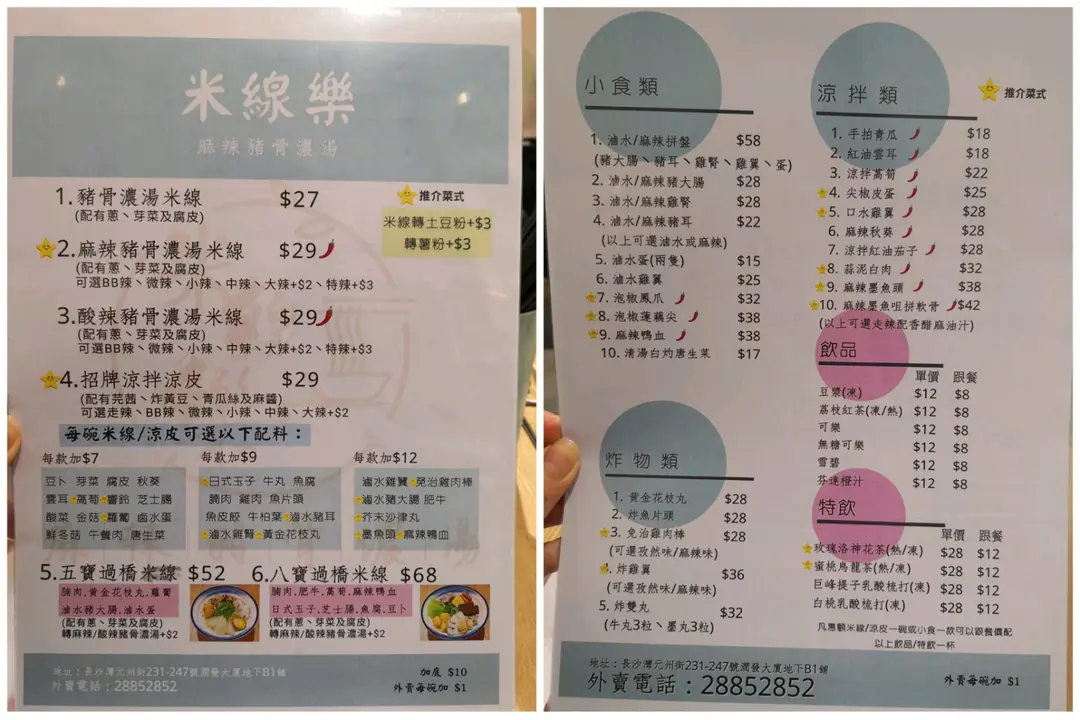 米線樂
麻辣豬骨濃湯
1.豬骨濃湯米線 $27
(配有蔥、芽菜及腐皮)
推介菜式
米線轉土豆粉+$3
轉薯粉+$3
2.麻辣豬骨濃湯米線 $29
(配有蔥、芽菜及腐皮)
可選BB辣、微辣、小辣、中辣、大辣+$2、特辣+$3
3.酸辣豬骨濃湯米線 $29
(配有蔥、芽菜及腐皮)
可選BB辣、微辣、小辣、中辣、大辣+$2、特辣+$3
4.招牌涼拌涼皮 $29
(配有芫茜、炸黃豆、青瓜絲及麻醬)
可選走辣、BB辣、微辣、小辣、中辣、大辣+$2
每碗米線/涼皮可選以下配料：
每款加$7
豆卜 芽菜 腐皮 秋葵
雲耳 萵筍 響鈴 芝士腸
酸菜 金菇 蘿蔔 鹵水蛋
鮮冬菇 午餐肉 唐生菜
每款加$9
日式玉子 牛丸 魚腐
腩肉 雞肉 魚片頭
魚皮餃 牛柏葉 滷水豬耳
滷水雞腎 黃金花枝丸
每款加$12
滷水雞翼 免治雞肉棒
滷水豬大腸 肥牛
芥末沙律丸
墨魚頭 麻辣鴨血
5.五寶過橋米線 $52
腩肉,黃金花枝丸,蘿蔔
滷水豬大腸,滷水蛋
(配有蔥、芽菜及腐皮)
轉麻辣/酸辣豬骨濃湯+$2
6.八寶過橋米線 $68
腩肉,肥牛,萵筍,麻辣鴨血
日式玉子,芝士腸,魚腐,豆卜
(配有蔥、芽菜及腐皮)
轉麻辣/酸辣豬骨濃湯+$2
地址：長沙灣元州街231-247號潤發大廈地下B1鋪
外賣電話：28852852
加底 $10
外賣每碗加 $1
小食類
1. 滷水/麻辣拼盤 $58
(豬大腸、豬耳、雞腎、雞翼、蛋)
2. 滷水/麻辣豬大腸 $28
3. 滷水/麻辣雞腎 $28
4. 滷水/麻辣豬耳 $22
(以上可選滷水或麻辣)
5. 滷水蛋(兩隻) $15
6. 滷水雞翼 $25
7. 泡椒鳳爪 $32
8. 泡椒蓮藕尖 $38
9. 麻辣鴨血 $38
10. 清湯白灼唐生菜 $17
炸物類
1. 黃金花枝丸 $28
2. 炸魚片頭 $28
3. 免治雞肉棒 $28
(可選孜然味/麻辣味)
4. 炸雞翼 $36
(可選孜然味/麻辣味)
5. 炸雙丸 $32
(牛丸3粒、墨丸3粒)
涼拌類
推介菜式
1. 手拍青瓜 $18
2. 紅油雲耳 $18
3. 涼拌萵筍 $22
4. 尖椒皮蛋 $25
5. 口水雞翼 $28
6. 麻辣秋葵 $28
7. 涼拌紅油茄子 $28
8. 蒜泥白肉 $32
9. 麻辣墨魚頭 $38
10. 麻辣墨魚咀拼軟骨 $42
(以上可選走辣配香醋麻油汁)
飲品
單價 跟餐
豆漿(凍) $12 $8
荔枝紅茶(凍/熱) $12 $8
可樂 $12 $8
無糖可樂 $12 $8
雪碧 $12 $8
芬達橙汁 $12 $8
特飲
單價 跟餐
玫瑰洛神花茶(熱/凍) $28 $12
蜜桃烏龍茶(熱/凍) $28 $12
巨峰提子乳酸梳打(凍) $28 $12
白桃乳酸梳打(凍) $28 $12
凡惠顧米線/涼皮一碗或小食一款可以跟餐價配
以上飲品/特飲一杯
地址：長沙灣元州街231-247號潤發大廈地下B1鋪
外賣電話：28852852
外賣每碗加 $1